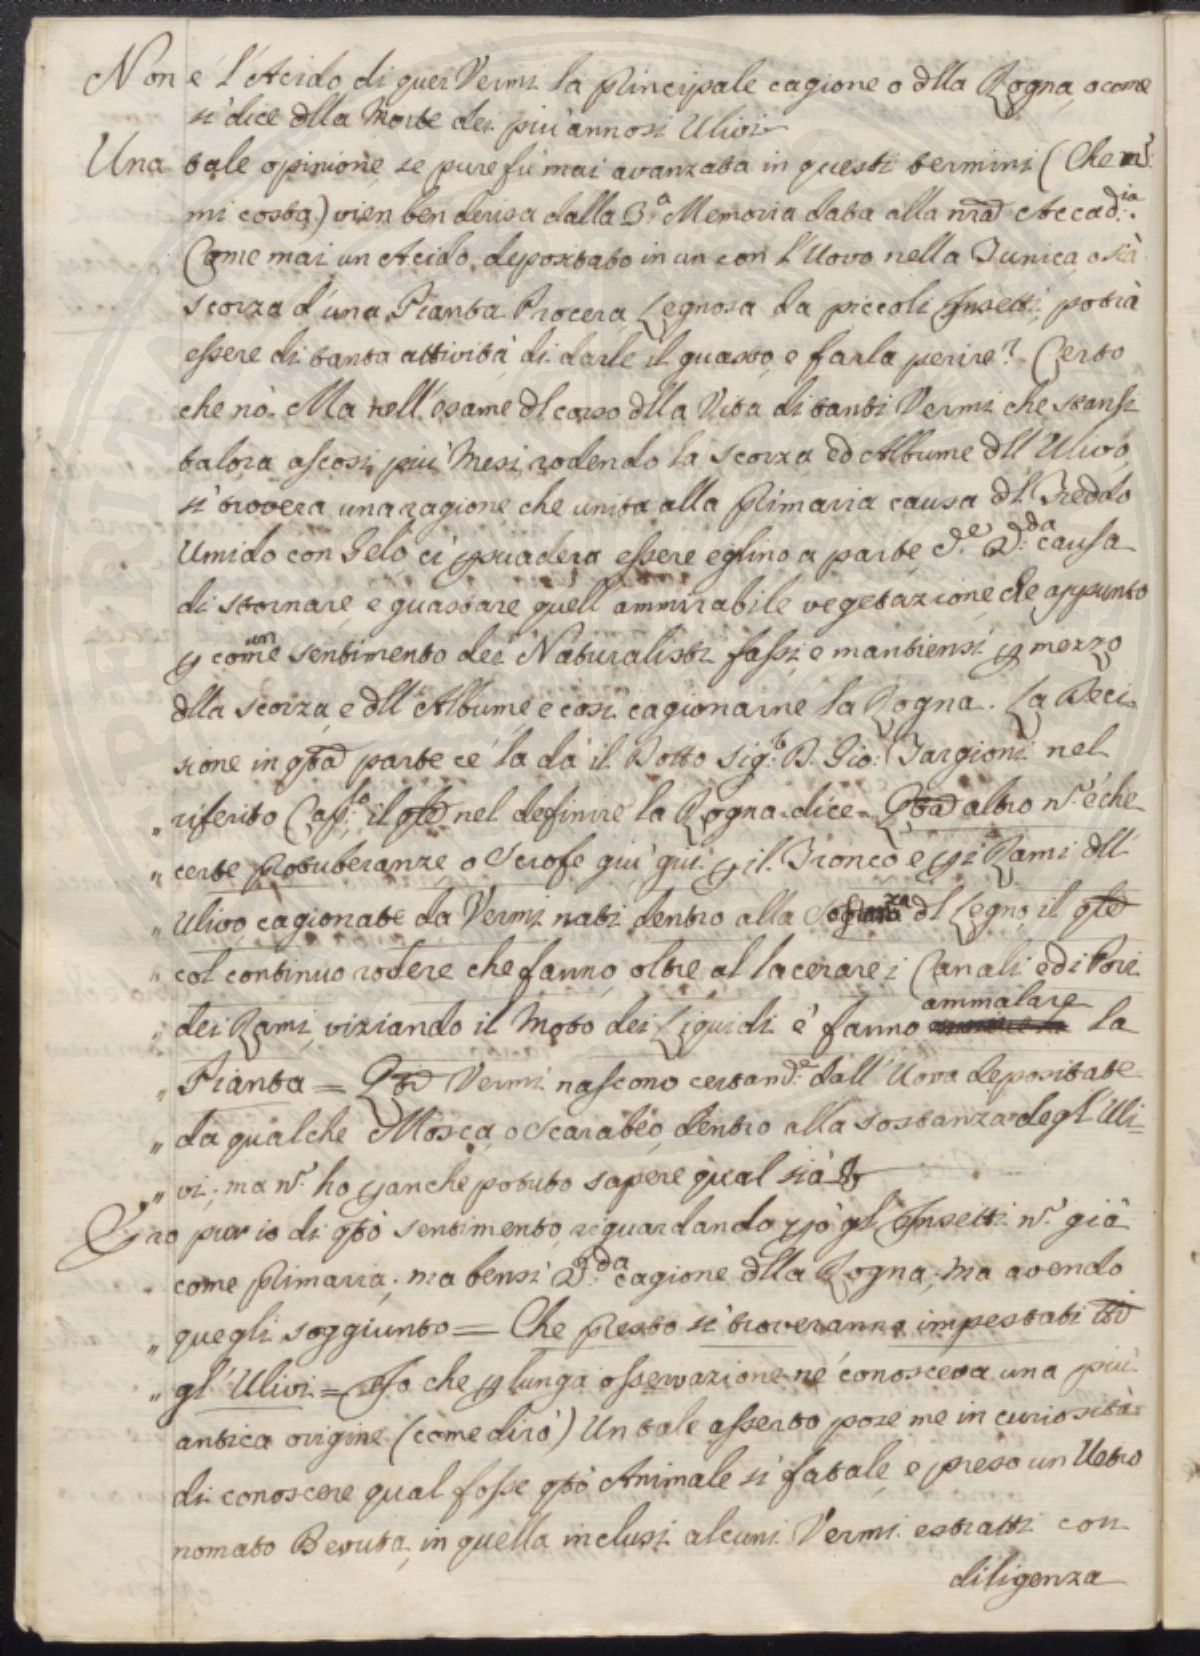 Non é l'Acido di quei Vermi la principale cagione o dlla Rogna, o come
si dice dlla Morte dei più annosi Ulivi
Una tale opinione, se pure fù mai avanzata in questi termini (Che n.
mi costa) vien ben derisa dalla 3.a Memoria data alla nrã Accad:ia.
Come mai un Acido depositato in un con l'Uovo nella Tunica, o sia
scorza d'una Pianta Procera, Legnosa da piccoli Insetti, potrà
essere di tanta attività, di darle il guasto, e farla perire? Certo
che nò. Ma nell'esame dl corso dlla Vita di tanti Vermi che stansi
talora ascosi più Mesi, rodendo la scorza ed Albume dll'Ulivo,
si troverà una ragione, che unita alla Primaria causa dl Freddo
Umido con Gelo ci psuaderà essere eglino a parte, e 2:da causa
di stornare, e guastare quell'ammirabile vegetazione, che appunto
p comun sentimento dei Naturalisti fassi, e mantiensi p mezzo
dlla scorza, e dll'Albume e così cagionarne la Rogna. La Deci=
sione in qtã parte ce la dà il Dotto Sig.r D. Gio: Targioni nel
„ riferito Cap.o il qlẽ nel definire la Rogna dice = Qtã altro n. é che
„ certe Protuberanze o Scrofe quì quì p il Tronco e pi Rami dll'
„ Ulivo cagionate da Vermi nati dentro alla dl Legno, il qlẽ
„ col continuo rodere che fanno, oltre al lacerare i Canali ed i Pori
„ dei Rami, viziando il Moto dei Liquidi è fanno ammalare la
„ Pianta = Qti Vermi nascono certam.e dall'Uova depositate
„ da qualche Mosca, o Scarabeo, dentro alla sostanza degl'Uli=
„ vi; ma n. ho p anche potuto sapere qual sia &
Ero pur io di qtò sentimento, riguardando pò gl'Insetti n. già
come Primaria; ma bensì 2:da cagione dlla Rogna; Ma avendo
„ quegli soggiunto = Che Presto si troveranno impestati tti
„ gl'Ulivi = Io che p lunga osservazione né conosceva una più
antica origine (come dirò) Un tale asserto pose me in curiosità
di conoscere qual fosse qtò Animale sì fatale, e preso un Vetro
nomato Bevuta, in quella inclusi alcuni Vermi estratti con
diligenza